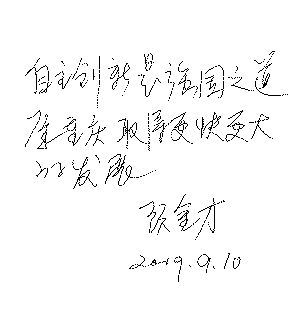 自主创新是强国之道
愿重庆取得更快更大
的发展
张金才
2019.9.10